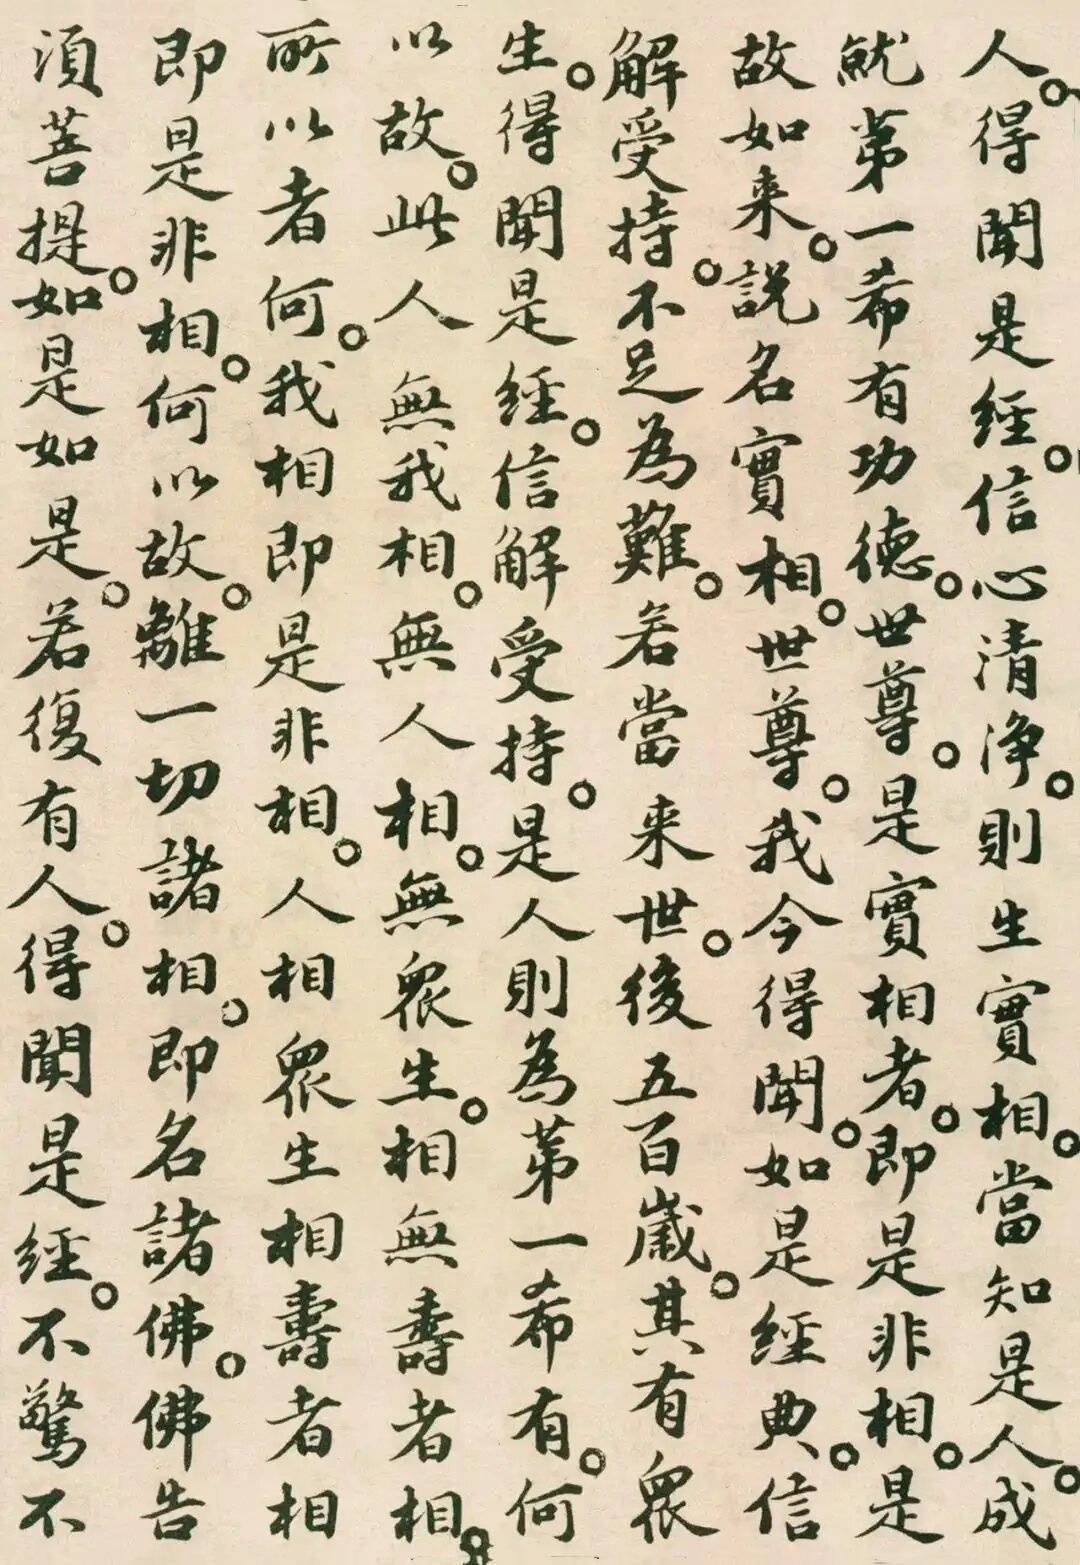 人。得聞是經。信心清淨。則生實相。當知是人。成
就第一希有功德。世尊。是實相者。即是非相。是
故如来。說名實相。世尊。我今得聞。如是經典。信
解受持。不足為難。若當来世。後五百歲。其有眾
生。得聞是經。信解受持。是人則為第一希有。何
以故。此人無我相。無人相。無眾生。相無壽者相。
所以者何。我相即是非相。人相眾生相壽者相
即是非相。何以故。離一切諸相。即名諸佛。佛告
須菩提。如是如是。若復有人。得聞是經。不驚不